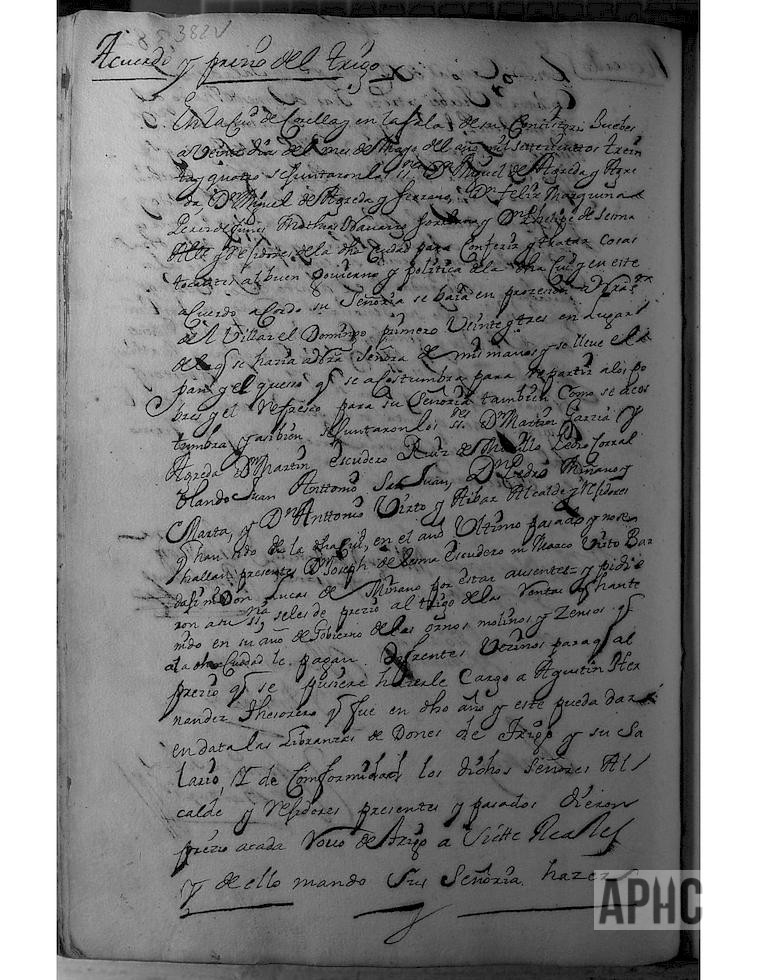 Acuerdo y prezio del trigo
En la Ciud de Corella y en la sala de su Consistorio Juebes
a Veinte dias del mes de Mayo del año mil setecientos trein
ta y quatro se Juntaron los ss. Dn Miguel de Agreda y Agre
da Dn Miguel de Agreda y Serrano, Dn Felix Marquina
Mathias Navarro y Dn Phelipe de Sesma
Alcde y Rexidores de la dha Ciudad para Conferir y tratar cosas
tocantes al buen Govierno y politica de la dha Ciud y en este
acuerdo acordo su Señoria se baia en prozesion a Nra Sra
del Villar el Domingo primero Veinte y tres en Lugar
de la q se hazia a dha Señora de mis manos y se lleve el
pan y el quesso q se acostumbra para repartir a los po
bres y el Refresco para su Señoria tambien Como se acos
tumbra y asibien se Juntaron los ss. Dn Martin Garzia y
Agreda Dn Martin escudero Ruiz de Murillo Pedro Corral
Blando Juan Anttonio San Juan, Dn Pedro Miñano y
Marta, y Dn Anttonio Virto y Aibar Alcalde y Rexidores
q han sido de la dha Ciud, en el año Ultimo pasado y no se
hallan presentes Dn Joseph de Sesma Escudero ni Marco Virto Bar
ni Don Lucas de Miñano por estar ausentes = y pidie
ron a su sia, seles de prezio al trigo de las Ventas q han te
nido en su año de Gobierno de los ornos molinos y Zensos q
a la dha Ciudad le pagan diferentes Vezinos para q al
prezio q se pusiere hazerle Cargo a Agustin Her
nandez Thesorero q fue en dho año y este pueda dar
en data las Libranzas de Dones de Trigo y su Sa
lario, Y de Comformidad los dichos Señores Al
calde y Rexidores presentes y pasados dieron
prezio a cada Rovo de trigo a Siette Reales
y de ello mando Su Señoria hazer
APHC